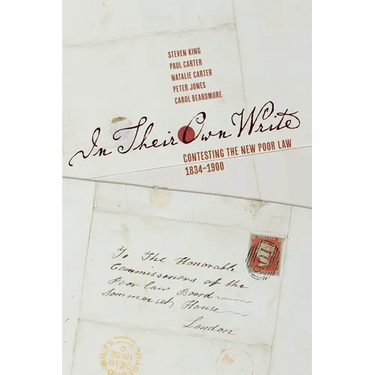 STEVEN KING
PAUL CARTER
NATALIE CARTER
PETER JONES
CAROL BEARDMORE
In Their Own Write
CONTESTING THE NEW POOR LAW
1834–1900
To The Honorable
Commissioners of the
Poor Law Board
Sommerset House
London